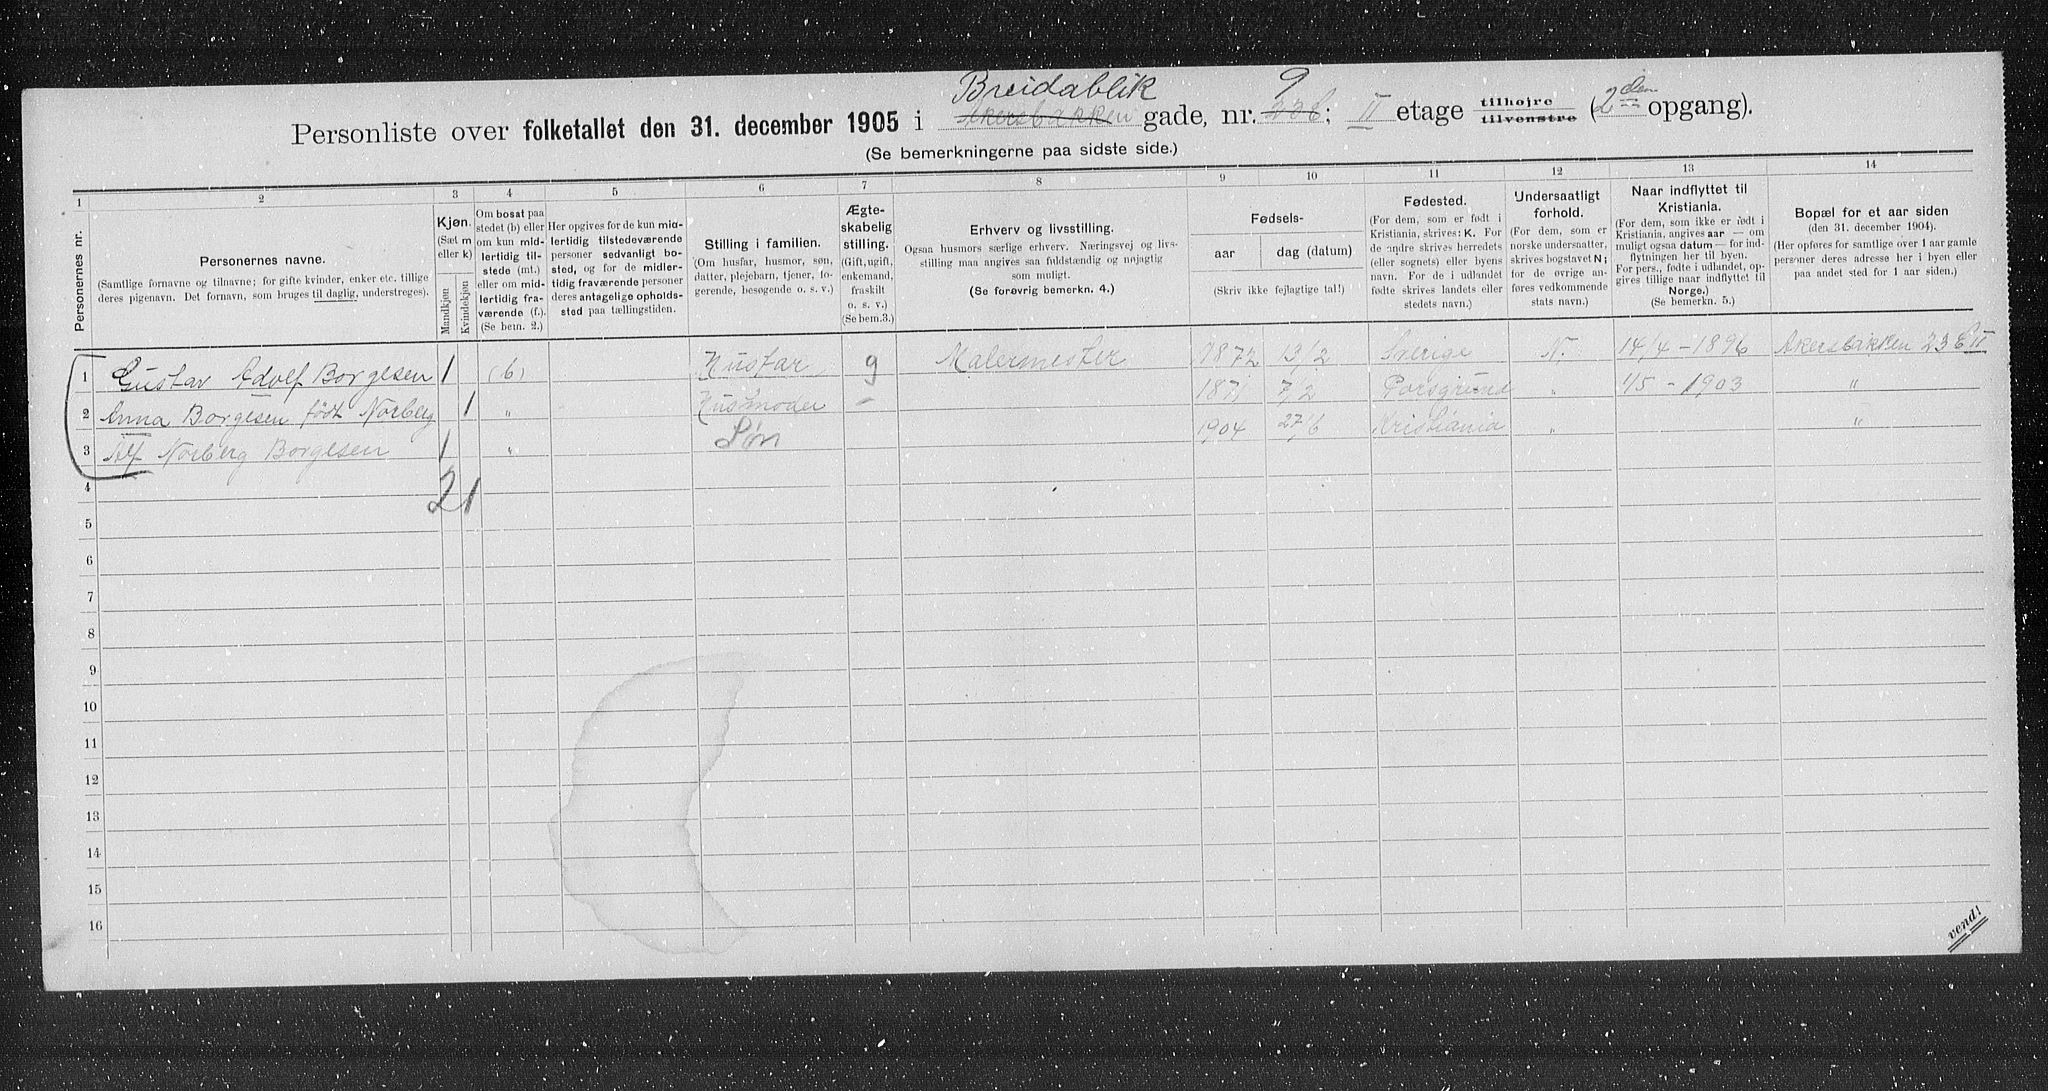 Breidablik 9
Personliste over folketallet den 31. december 1905 i Akersbakken gade, nr. 23b; II etage tilhøjre tilvenstre (2den opgang).
(Se bemerkningerne paa sidste side.)
1 2 3 4 5 6 7 8 9 10 11 12 13 14
Personernes nr.
Personernes navne.
(Samtlige fornavne og tilnavne; for gifte kvinder, enker etc. tillige
deres pigenavn. Det fornavn, som bruges til daglig, understreges).
Kjøn.
(Sæt m
eller k)
Mandkjøn
Kvindekjøn
Om bosat paa
stedet (b) eller
om kun mid-
lertidig til-
stede (mt.)
eller om mid-
lertidig fra-
værende (f.).
(Se bem. 2.)
Her opgives for de kun mid-
lertidig tilstedeværende
personer sedvanligt bo-
sted, og for de midler-
tidig fraværende personer
deres antagelige opholds-
sted paa tællingstiden.
Stilling i familien.
(Om husfar, husmor, søn,
datter, plejebarn, tjener, lo-
gerende, besøgende o. s. v.)
Ægte-
skabelig
stilling.
(Gift, ugift,
enkemand,
fraskilt
o. s. v.)
(Se bem. 3.)
Erhverv og livsstilling.
Ogsaa husmors særlige erhverv. Næringsvej og livs-
stilling maa angives saa fuldstændig og nøjagtig
som muligt.
(Se forøvrig bemerkn. 4.)
Fødsels-
aar
dag (datum)
(Skriv ikke fejlagtige tal!)
Fødested.
(For dem, som er født i
Kristiania, skrives: K. For
de andre skrives herredets
(eller sognets) eller byens
navn. For de i udlandet
fødte skrives landets eller
stedets navn.)
Undersaatligt
forhold.
(For dem, som er
norske undersaatter,
skrives bogstavet N;
for de øvrige an-
føres vedkommende
stats navn.)
Naar indflyttet til
Kristiania.
(For dem, som ikke er født i
Kristiania, angives aar — om
muligt ogsaa datum — for ind-
flytningen her til byen.
For pers., fødte i udlandet, op-
gives tillige naar indflyttet til
Norge.)
(Se bemerkn. 5.)
Bopæl for et aar siden
(den 31. december 1904).
(Her opføres for samtlige over 1 aar gamle
personer deres adresse her i byen eller
paa andet sted for 1 aar siden.)
1 Gustav Adolf Borgesen 1 (b) Husfar g Malermester 1872 13/2 Sverige N. 14/4 - 1896 Akersbakken 23 b II
2 Anna Borgesen født Norberg 1 " Husmoder - 1871 7/2 Porsgrund " 1/5 - 1903 "
3 Alf Norberg Borgesen 1 " Søn 1904 27/6 Kristiania " "
4 2 1
5
6
7
8
9
10
11
12
13
14
15
16
vend!